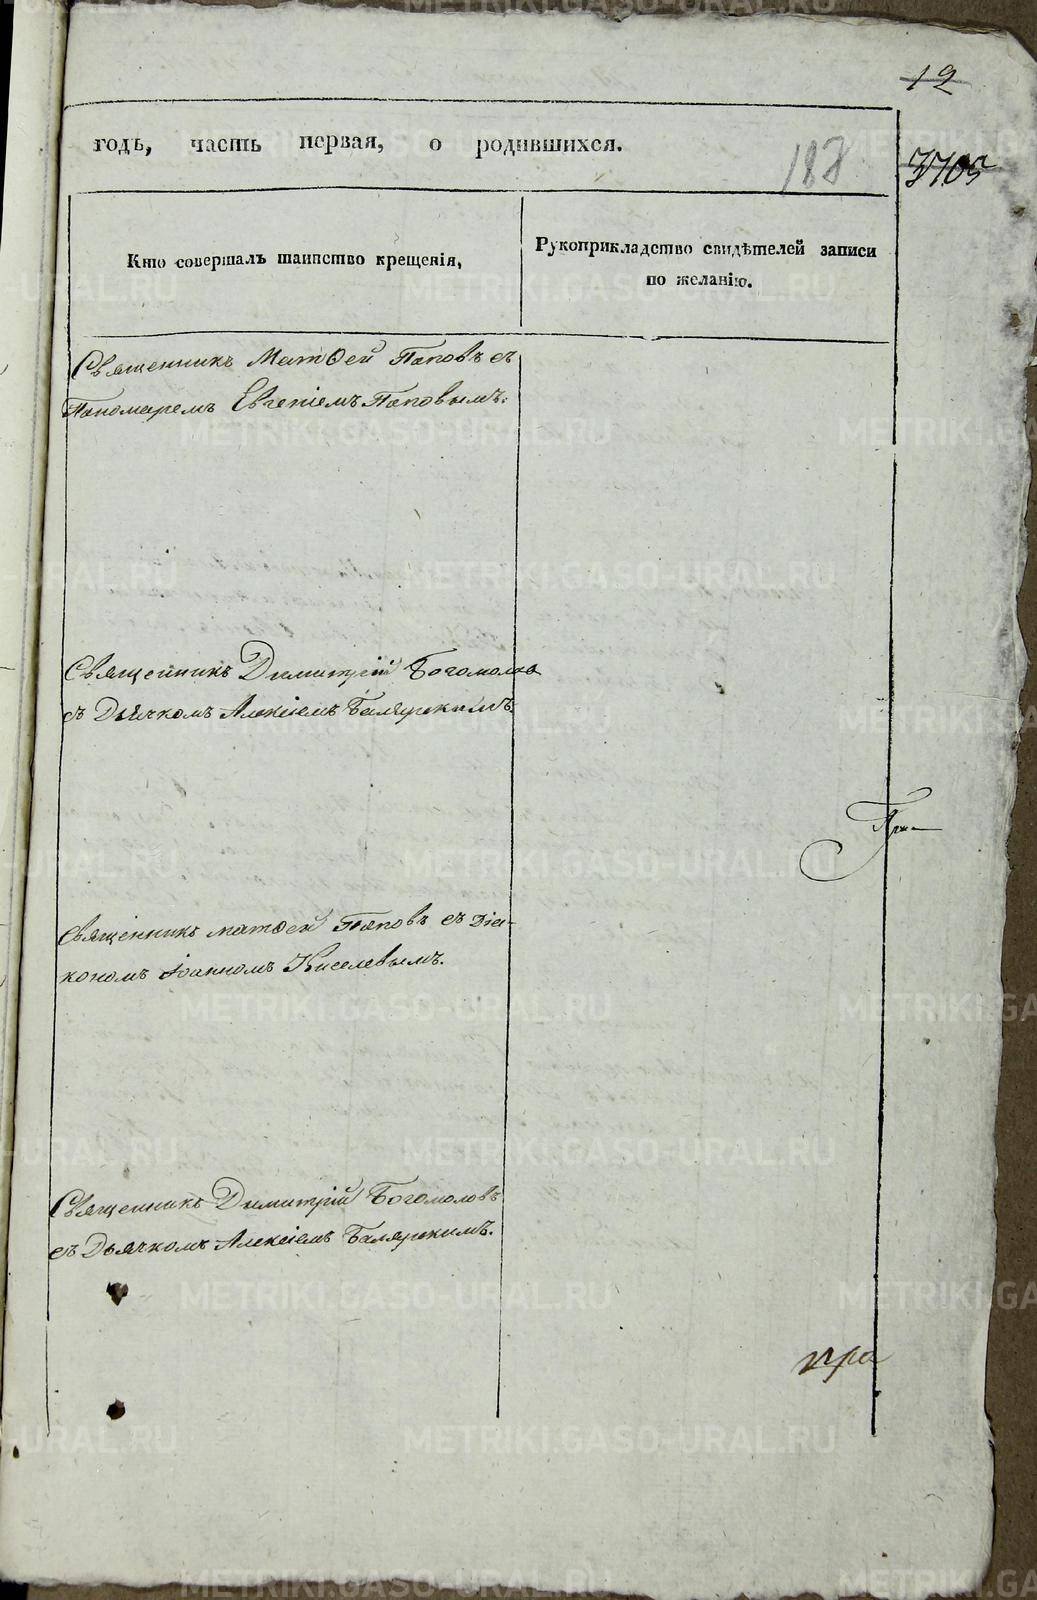 12
годъ, часть первая, о родившихся.
188
3705
Кто совершалъ таинство крещенія,
Рукоприкладство свидѣтелей записи
по желанію.
Священникъ Матѳей Поповъ съ
Пономаремъ Евгеніемъ Поповымъ.
Священникъ Димитрій Богомоловъ
съ Дьячкомъ Алексіемъ Баляркимъ.
Священникъ Матѳей Поповъ съ Діа-
кономъ Іоанномъ Киселевымъ.
Священникъ Димитрій Богомоловъ
съ Дьячкомъ Алексіемъ Баляркимъ.
METRIKI.GASO-URAL.RU